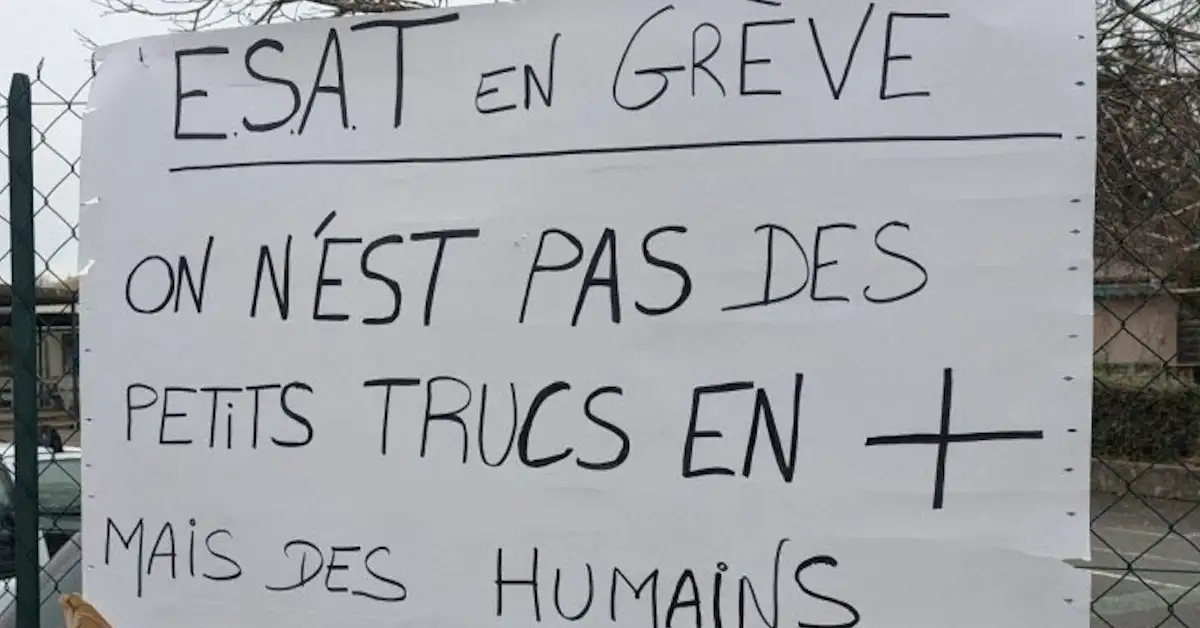 E.S.A.T EN GRÈVE
ON N'EST PAS DES
PETiTS TRUCS EN +
MAiS DES HUMAiNS